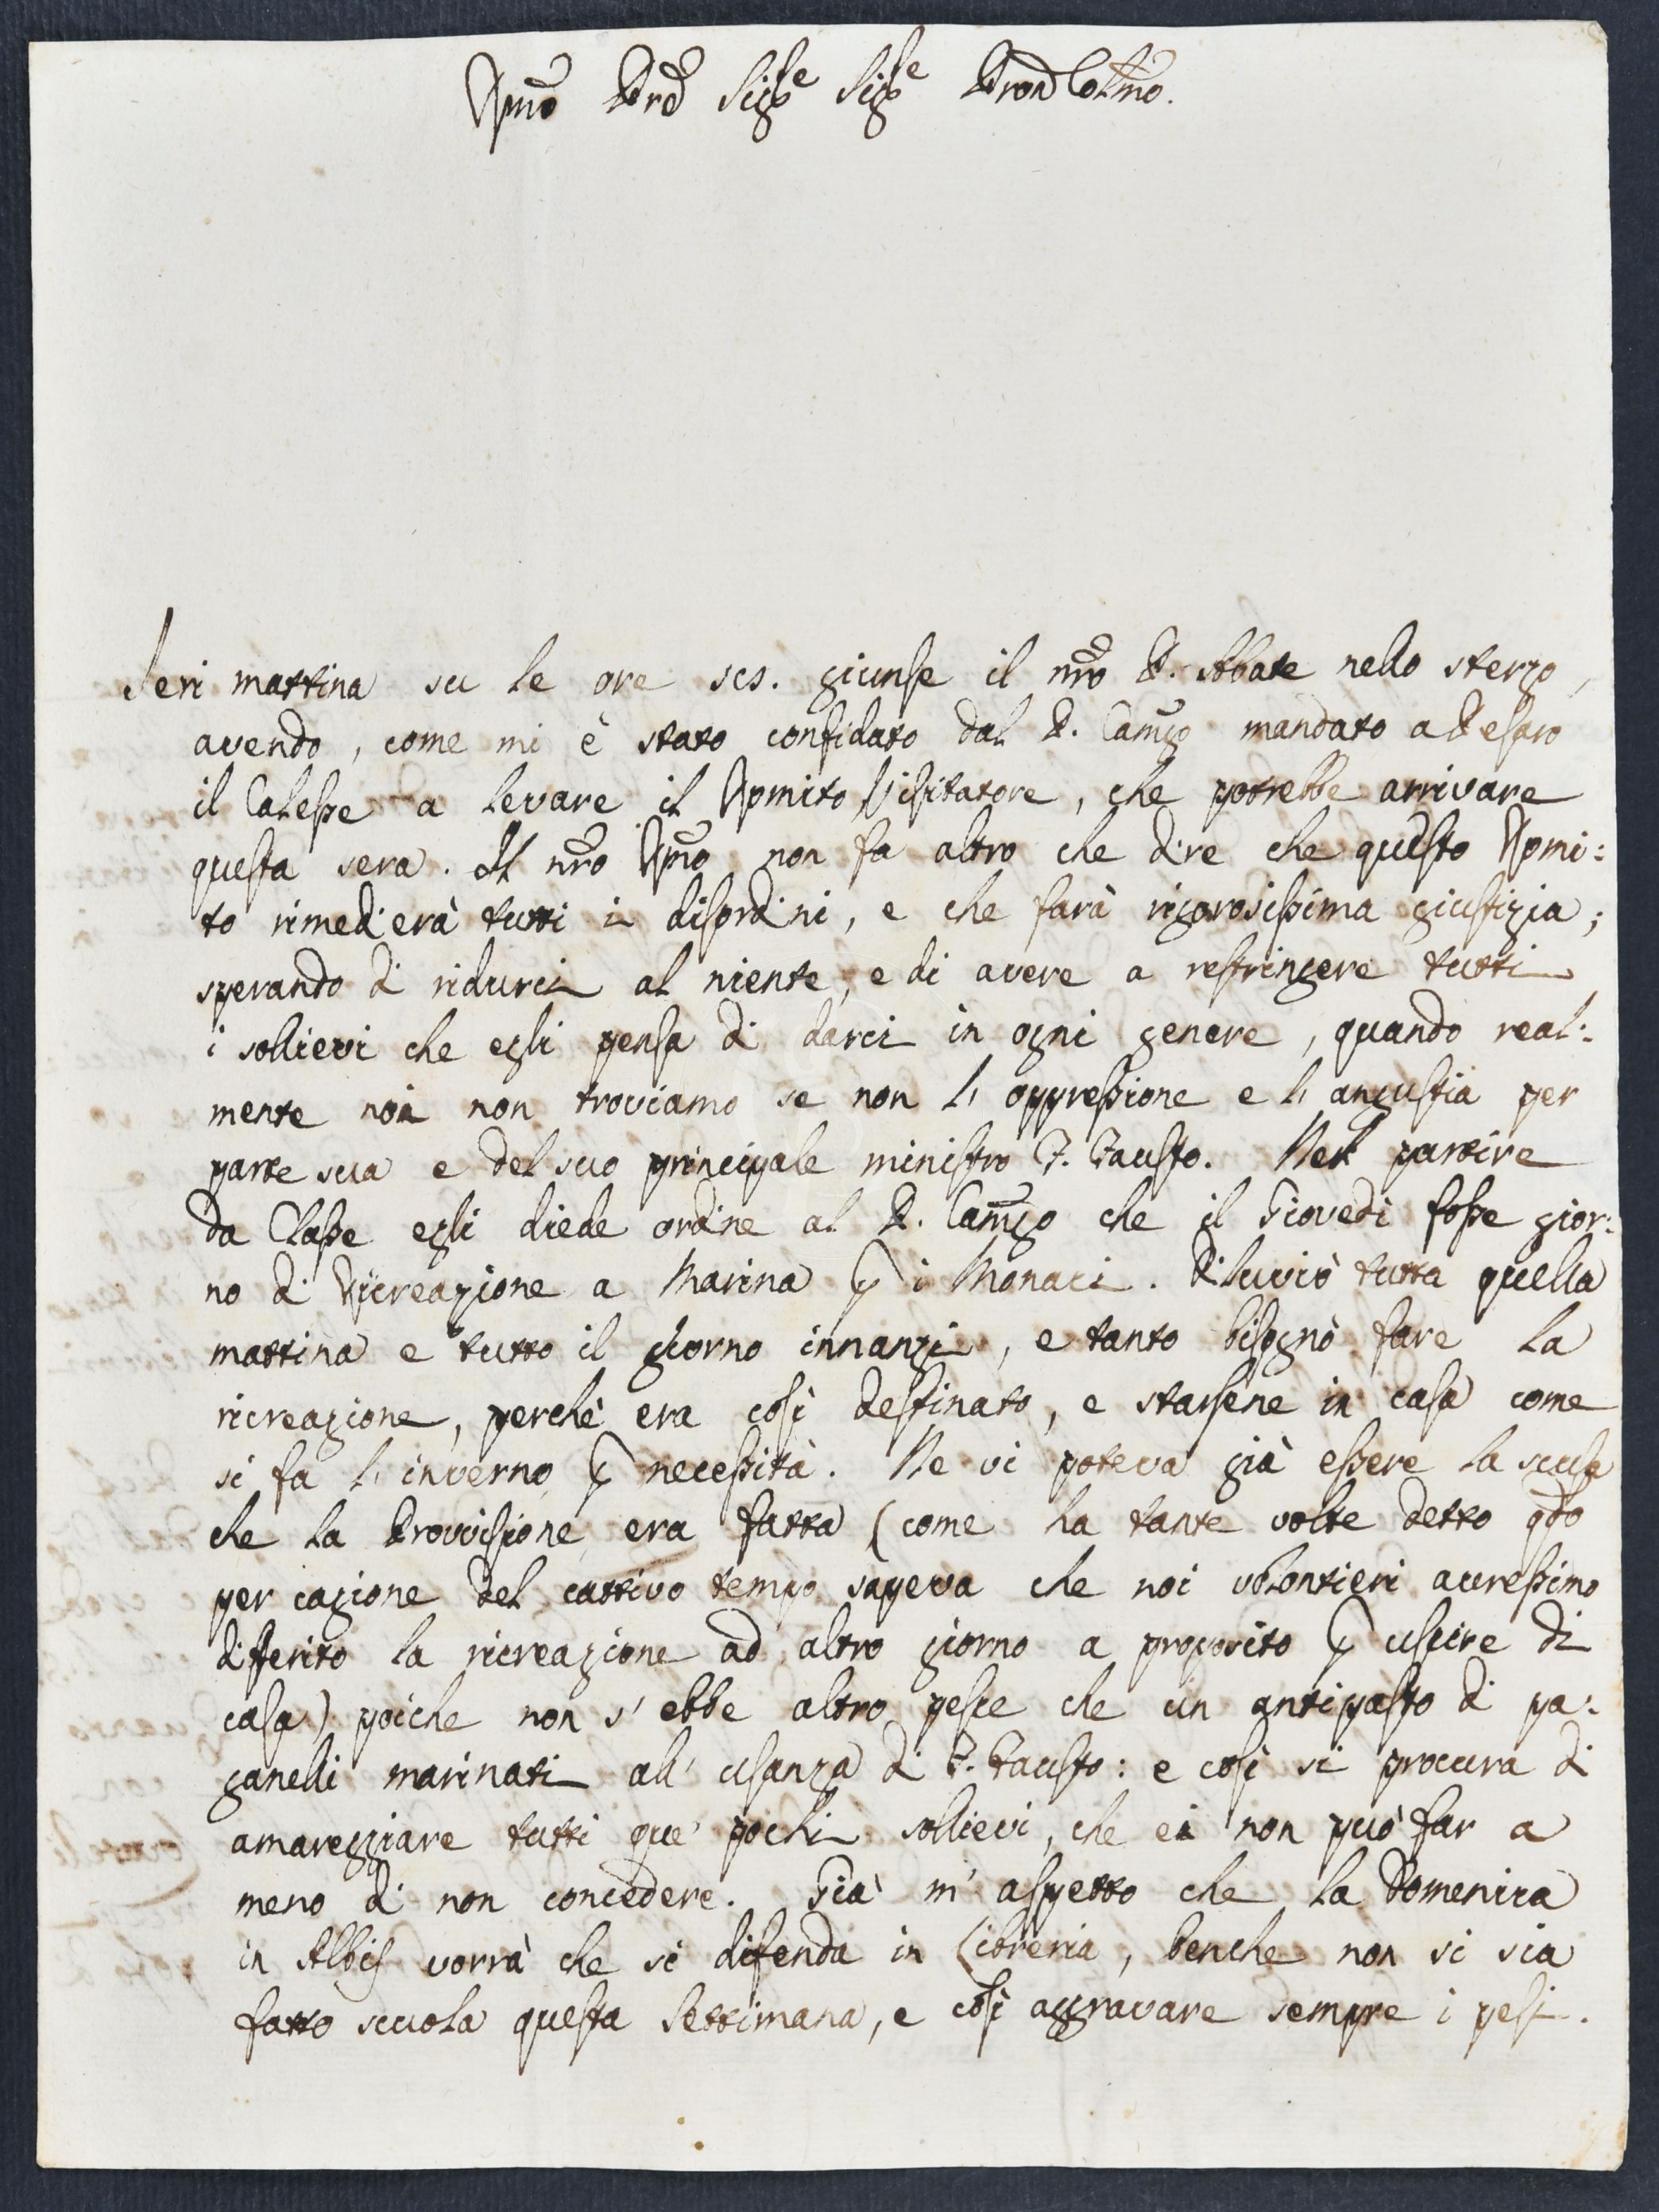 Rmo Prẽ Sigre Sigre Pron Colmo.
Ieri mattina su le ore sei. giunse il nro P. Abbate nello sterzo,
avendo, come mi è stato confidato dal P. Camgo mandato a Pesaro
il Calesse a levare il Romito Visitatore, che potrebbe arrivare
questa sera. Il nro Rmo non fa altro che dire che questo Romi:
to rimedierà tutti i disordini, e che farà rigorosissima giustizia;
sperando di ridurci al niente, e di avere a restringere tutti
i sollievi che egli pensa di darci in ogni genere, quando real:
mente noi non troviamo se non l'oppressione e l'angustia per
parte sua e del suo principale ministro F. Fausto. Nel partire
da Classe egli diede ordine al P. Camgo che il Giovedi fosse gior:
no di Ricreazione a Marina p i Monaci. Diluviò tutta quella
mattina e tutto il giorno innanzi, e tanto bisognò fare la
ricreazione, perchè era così destinato, e starsene in casa come
si fa l'inverno p necessità. Ne vi poteva già essere la scusa
che la Provvisione era fatta (come ha tante volte detto qdo
per cagione del cattivo tempo sapeva che noi volontieri avressimo
differito la ricreazione ad altro giorno a proposito p uscire di
casa) poiche non s'ebbe altro pesce che un antipasto di pa:
ganelli marinati all'usanza di F. Fausto: e così si procura di
amareggiare tutti que' pochi sollievi, che ei non può far a
meno di non concedere. Già m'aspetto che la Domenica
in Albis vorrà che si difenda in Libreria, benche non si sia
fatto scuola questa settimana, e così aggravare sempre i pesi.